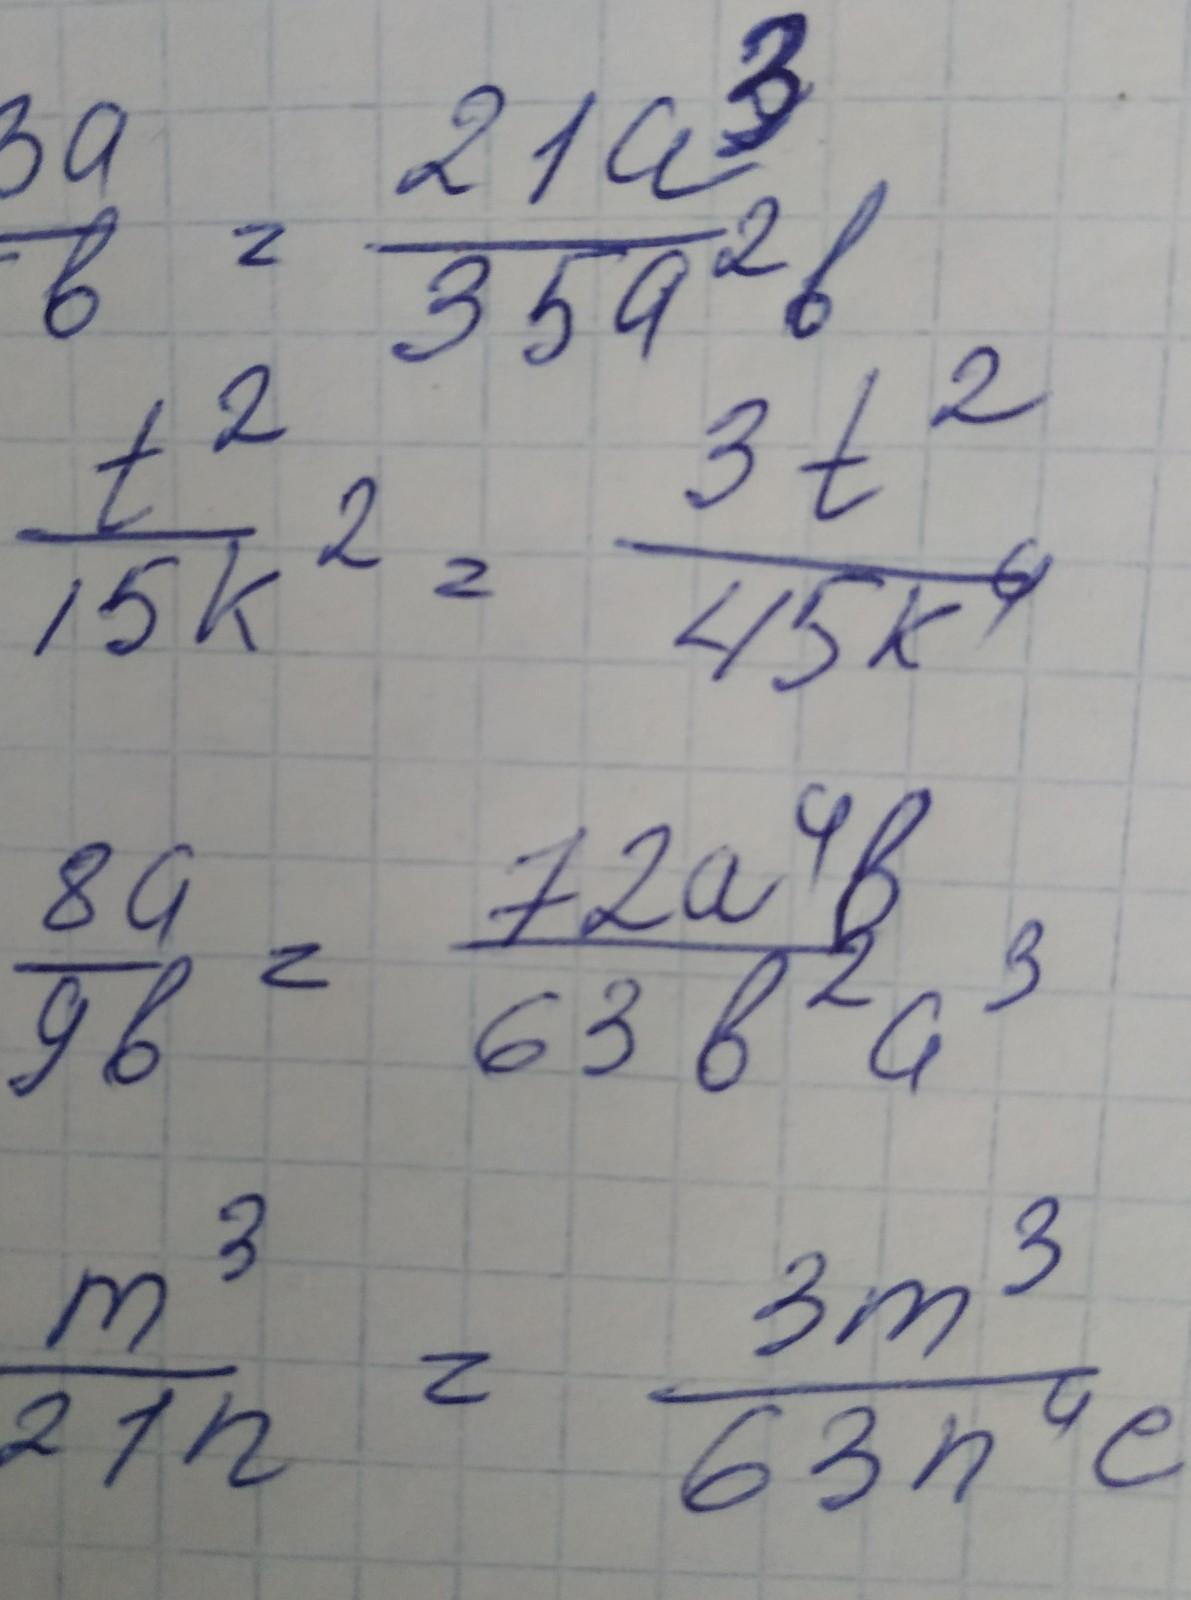 3a/b = 21a³/35a²b
t²/15k² = 3t²/45k⁴
8a/9b = 72a⁴b/63b²a³
m³/21n = 3m³/63n⁴c